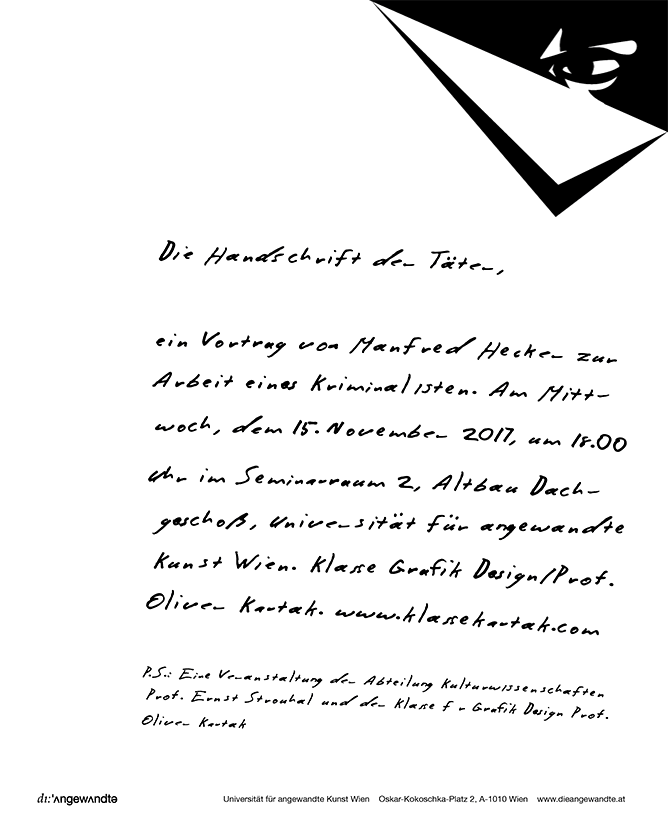 Die Handschrift der Täter,
ein Vortrag von Manfred Hecker zur
Arbeit eines Kriminalisten. Am Mitt-
woch, dem 15. November 2017, um 18.00
Uhr im Seminarraum 2, Altbau Dach-
geschoß, Universität für angewandte
Kunst Wien. Klasse Grafik Design/Prof.
Oliver Kartak. www.klassekartak.com
P.S.: Eine Veranstaltung der Abteilung Kulturwissenschaften
Prof. Ernst Strouhal und der Klasse f r Grafik Design Prof.
Oliver Kartak
dı:'ʌngewʌndtə Universität für angewandte Kunst Wien Oskar-Kokoschka-Platz 2, A-1010 Wien www.dieangewandte.at